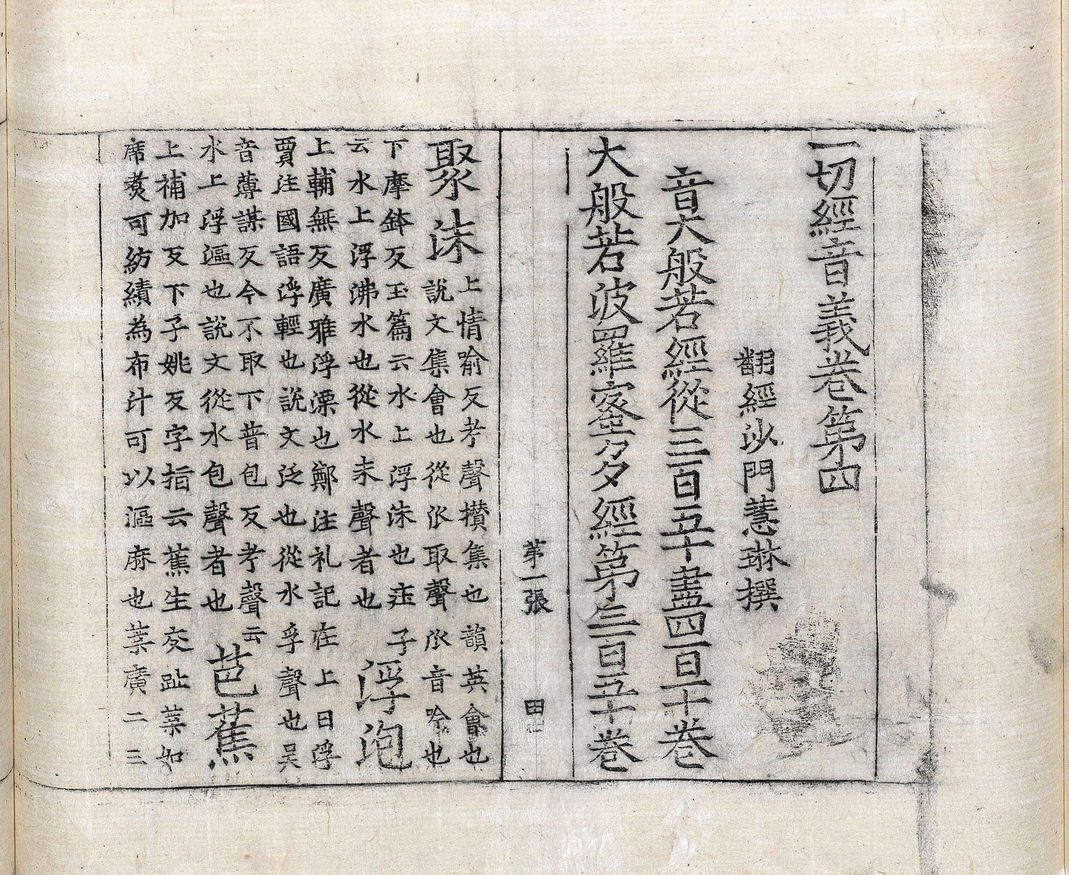 一切經音義卷第四
翻經沙門慧琳撰
音大般若經從三百五十盡四百二十卷
大般若波羅蜜多經第三百五十卷
第一張
田
聚沫
上情喻反考聲攅集也韻英會也
說文集會也從㐺取聲㐺音吟也
下摩鉢反玉篇云水上浮沫也迋子
云水上浮沸水也從水末聲者也
浮泡
上輔無反廣雅浮漂也鄭注礼記在上曰浮
賈注國語浮輕也說文泛也從水孚聲也吴
音薄謀反今不取下普包反考聲云
水上浮漚也說文從水包聲者也
芭蕉
上補加反下子姚反字指云蕉生交趾葉如
席煑可紡績為布汁可以漚麻也葉廣二三